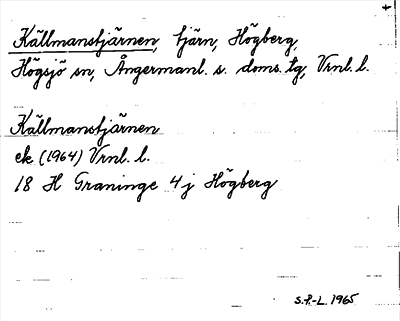 Källmanstjärnen, tjärn, Högberg,
Högsjö sn, Ångermanl. s. doms. tg, Vrnl. l.
Källmanstjärnen
ek (1964) Vrnl. l.
18 H Graninge 4 j Högberg
S.F.-L. 1965